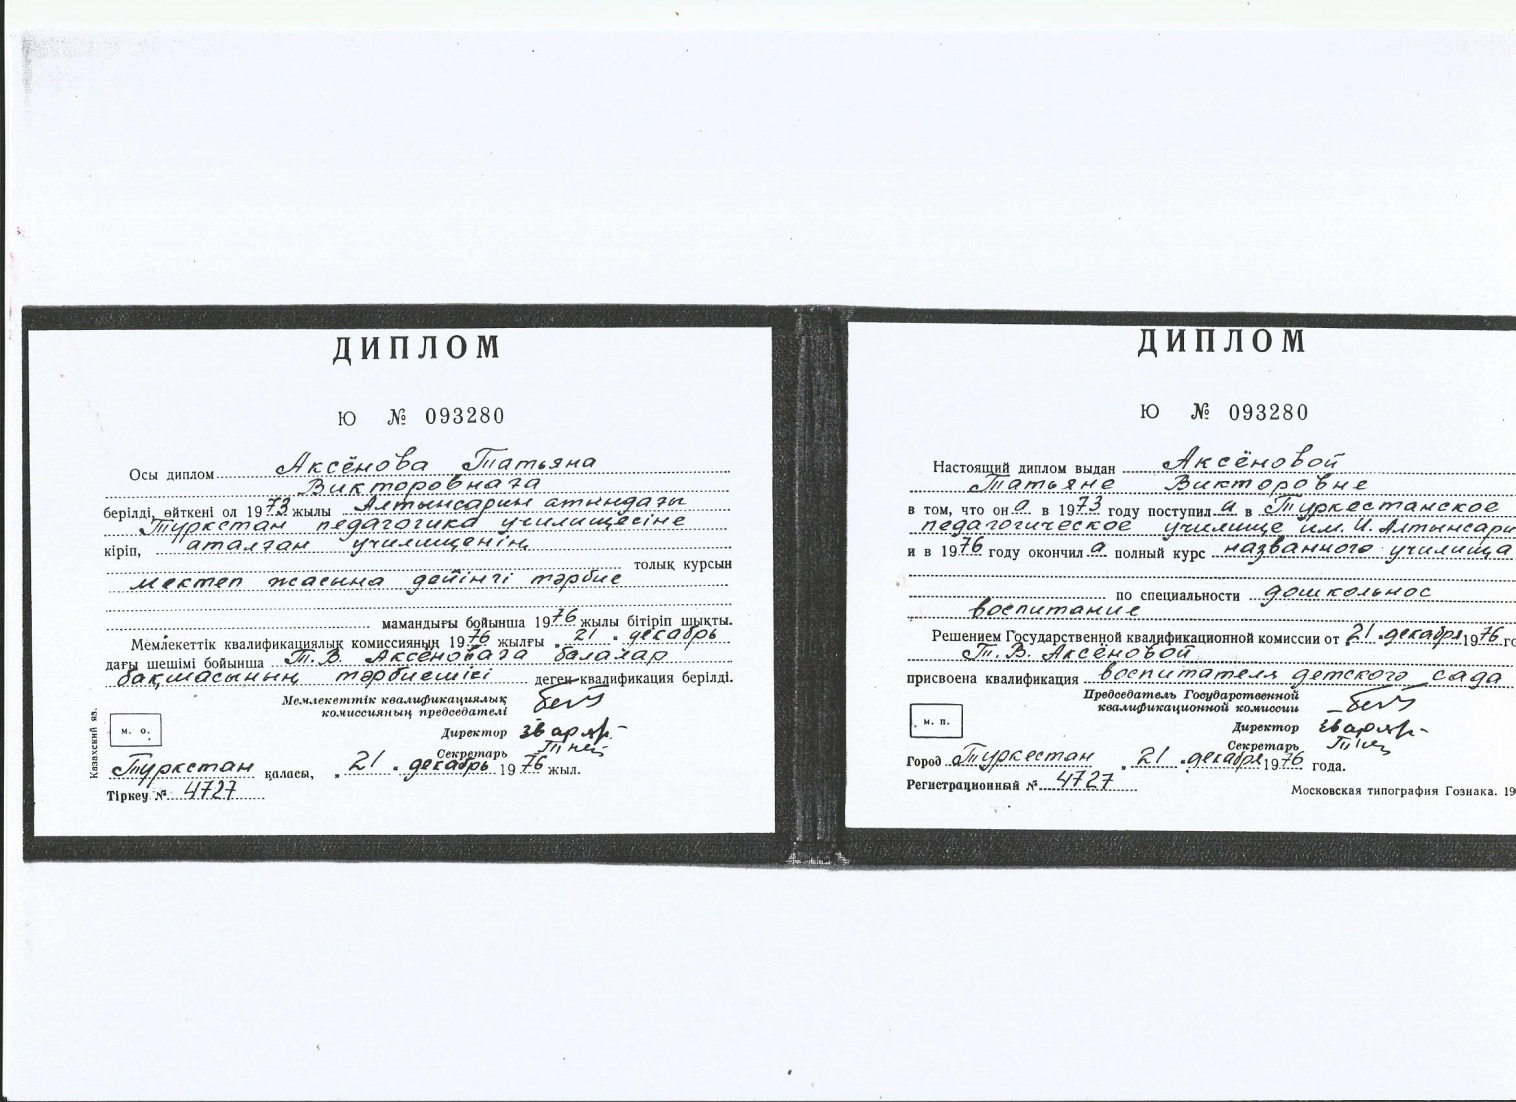 ДИПЛОМ
Ю № 093280
Осы диплом Аксёнова Татьяна
Викторовнаға
берілді, өйткені ол 1973 жылы Алтынсарин атындағы
Түркстан педагогика училищесіне
кіріп, аталған училищенің
толық курсын
мектеп жасына дейінгі тәрбие
мамандығы бойынша 1976 жылы бітіріп шықты.
Мемлекеттік квалификациялық комиссияның 1976 жылғы „21" декабрь
дағы шешімі бойынша Т.В. Аксёноваға балалар
бақшасының тәрбиешісі деген квалификация берілді.
Мемлекеттік квалификациялық
комиссияның председателі
Директор
Секретарь
м. о.
Казахский яз.
Түркстан қаласы, „21" декабрь 1976 жыл.
Тіркеу № 4727
ДИПЛОМ
Ю № 093280
Настоящий диплом выдан Аксёновой
Татьяне Викторовне
в том, что она в 1973 году поступила в Туркестанское
педагогическое училище им. И. Алтынсари
и в 1976 году окончила полный курс названного училища
по специальности дошкольное
воспитание
Решением Государственной квалификационной комиссии от 21 „декабря 1976 го
Т. В. Аксёновой
присвоена квалификация воспитателя детского сада
Председатель Государственной
квалификационной комиссии
Директор
Секретарь
м. п.
Город Туркестан „21" декабря 1976 года.
Регистрационный № 4727
Московская типография Гознака. 19